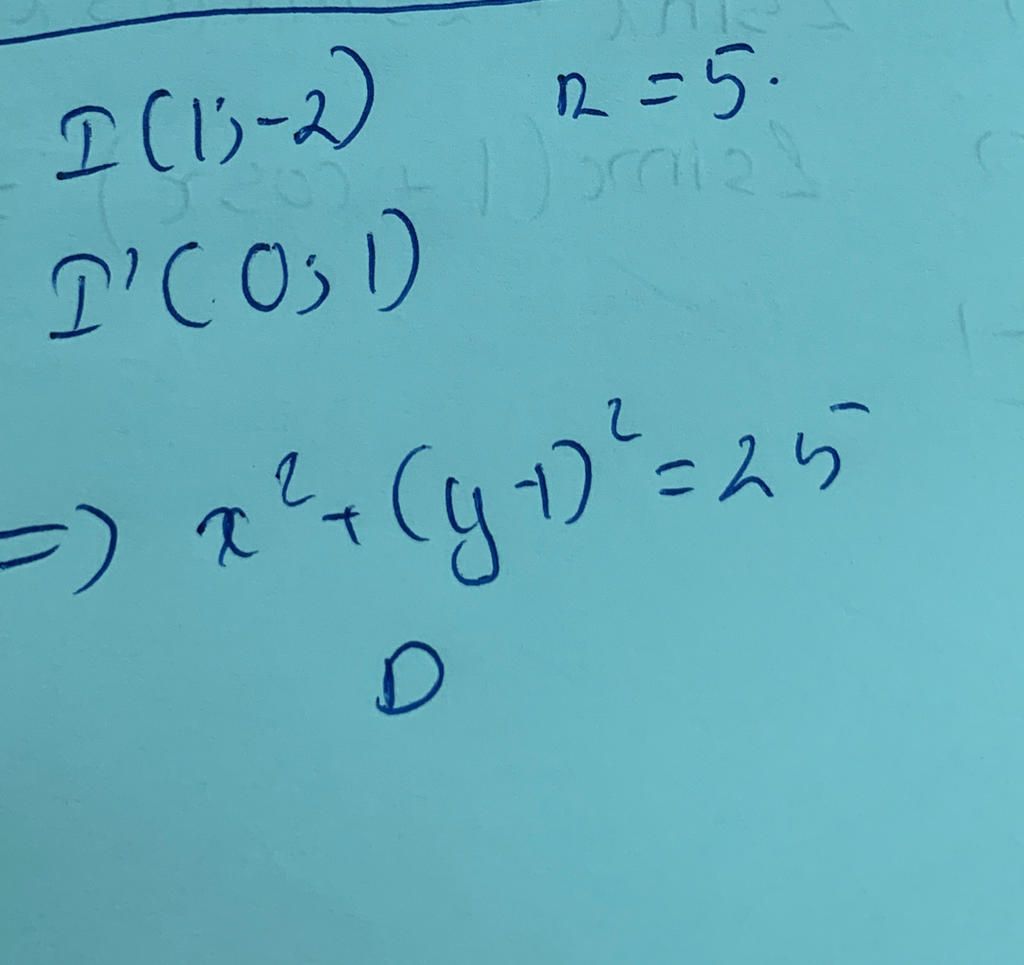 I(1;-2) r=5.
I'(0;1)
=> x²+(y-1)²=25
D